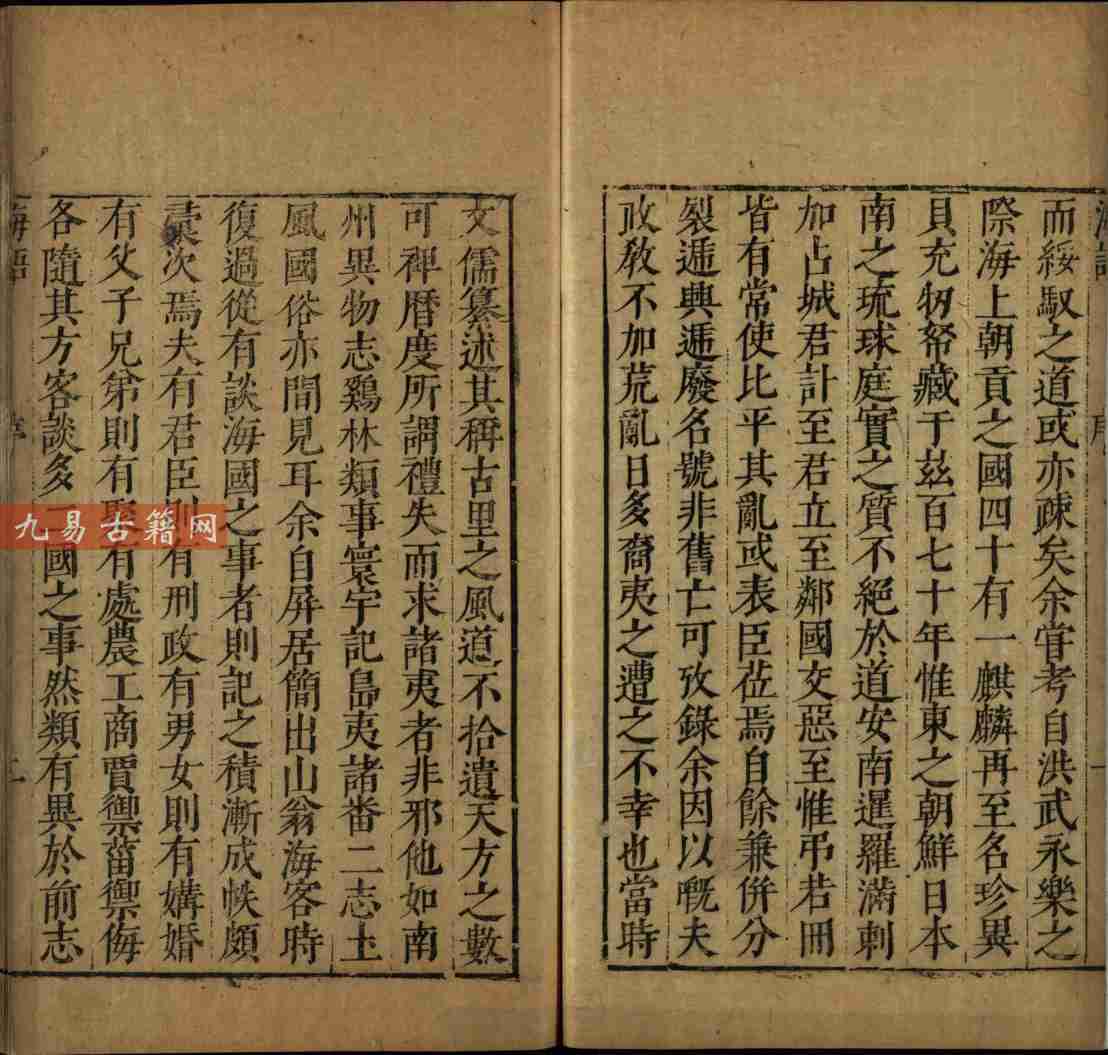 海語 序 一
而綏馭之道或亦疎矣余嘗考自洪武永樂之
際海上朝貢之國四十有一麒麟再至名珍異
貝充牣帑藏于茲百七十年惟東之朝鮮日本
南之琉球庭實之質不絕於道安南暹羅滿剌
加占城君訃至君立至鄰國交惡至惟弔若冊
皆有常使比平其亂或表臣莅焉自餘兼併分
裂遞興遞廢名號非舊亡可攷錄余因以嘅夫
政敎不加荒亂日多裔夷之遭之不幸也當時
文儒纂述其稱古里之風道不拾遺天方之數
可裨曆度所謂禮失而求諸夷者非邪他如南
州異物志鷄林類事寰宇記島夷諸番二志土
風國俗亦間見耳余自屏居簡出山翁海客時
復過從有談海國之事者則記之積漸成帙頗
彙次焉夫有君臣則有刑政有男女則有媾婚
有父子兄第則有聚有處農工商賈禦菑禦侮
各隨其方客談多二國之事然類有異於前志
海語 序 二
九易古籍网